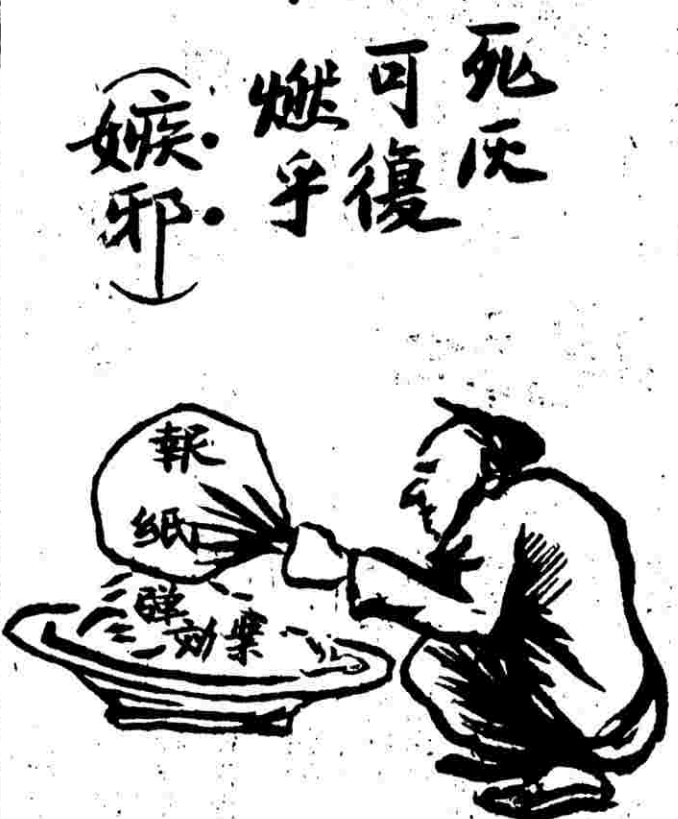 死灰
可復
燃乎
（嫉邪）
報紙
彈効案